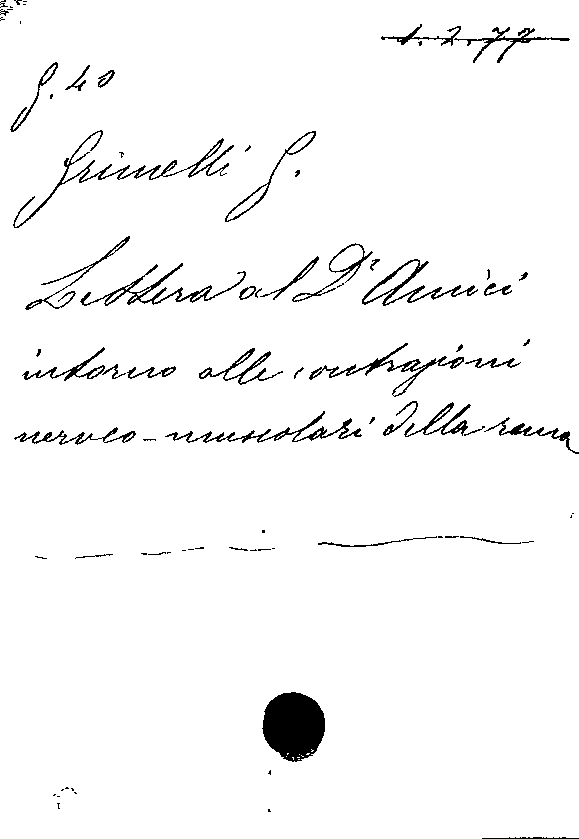 1.2.77
G. 40
Grimelli G.
Lettera al Dr Amici
intorno alle contrazioni
nerveo-muscolari della rana